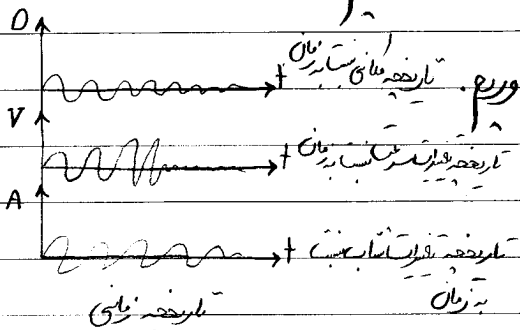 D
t تاریخچه مکانی نسبت به زمان
وریم.
V
t تاریخچه تغییرات سرعت نسبت به زمان
A
t تاریخچه تغییرات شتاب نسبت
به زمان
تاریخچه زمانی